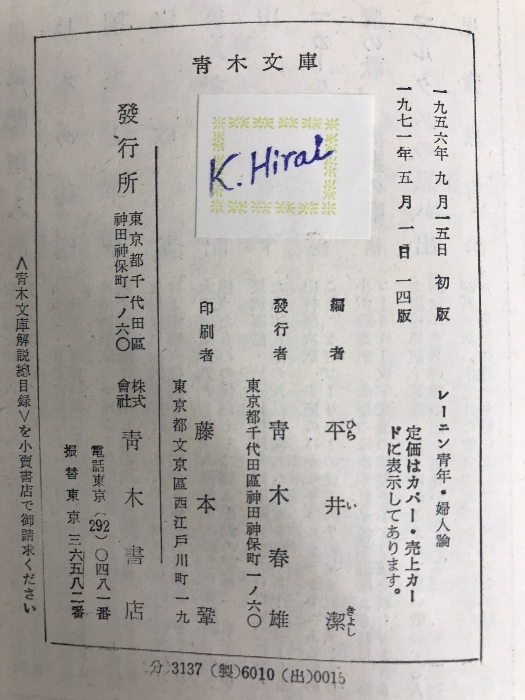 青木文庫
K. Hirai
一九五六年九月一五日 初版
一九七一年五月一日 一四版
レーニン青年・婦人論
定価はカバー・売上カー
ドに表示してあります。
編者 平井潔
ひらいきよし
發行者 青木春雄
東京都千代田區神田神保町一ノ六〇
印刷者 藤本鞏
東京都文京區西江戸川町一九
發行所
東京都千代田區
神田神保町一ノ六〇
株式會社 青木書店
電話東京(292)〇四八一番
振替東京三六五八二番
<青木文庫解説總目録>を小賣書店で御請求ください
(分)3137(製)6010(出)0015